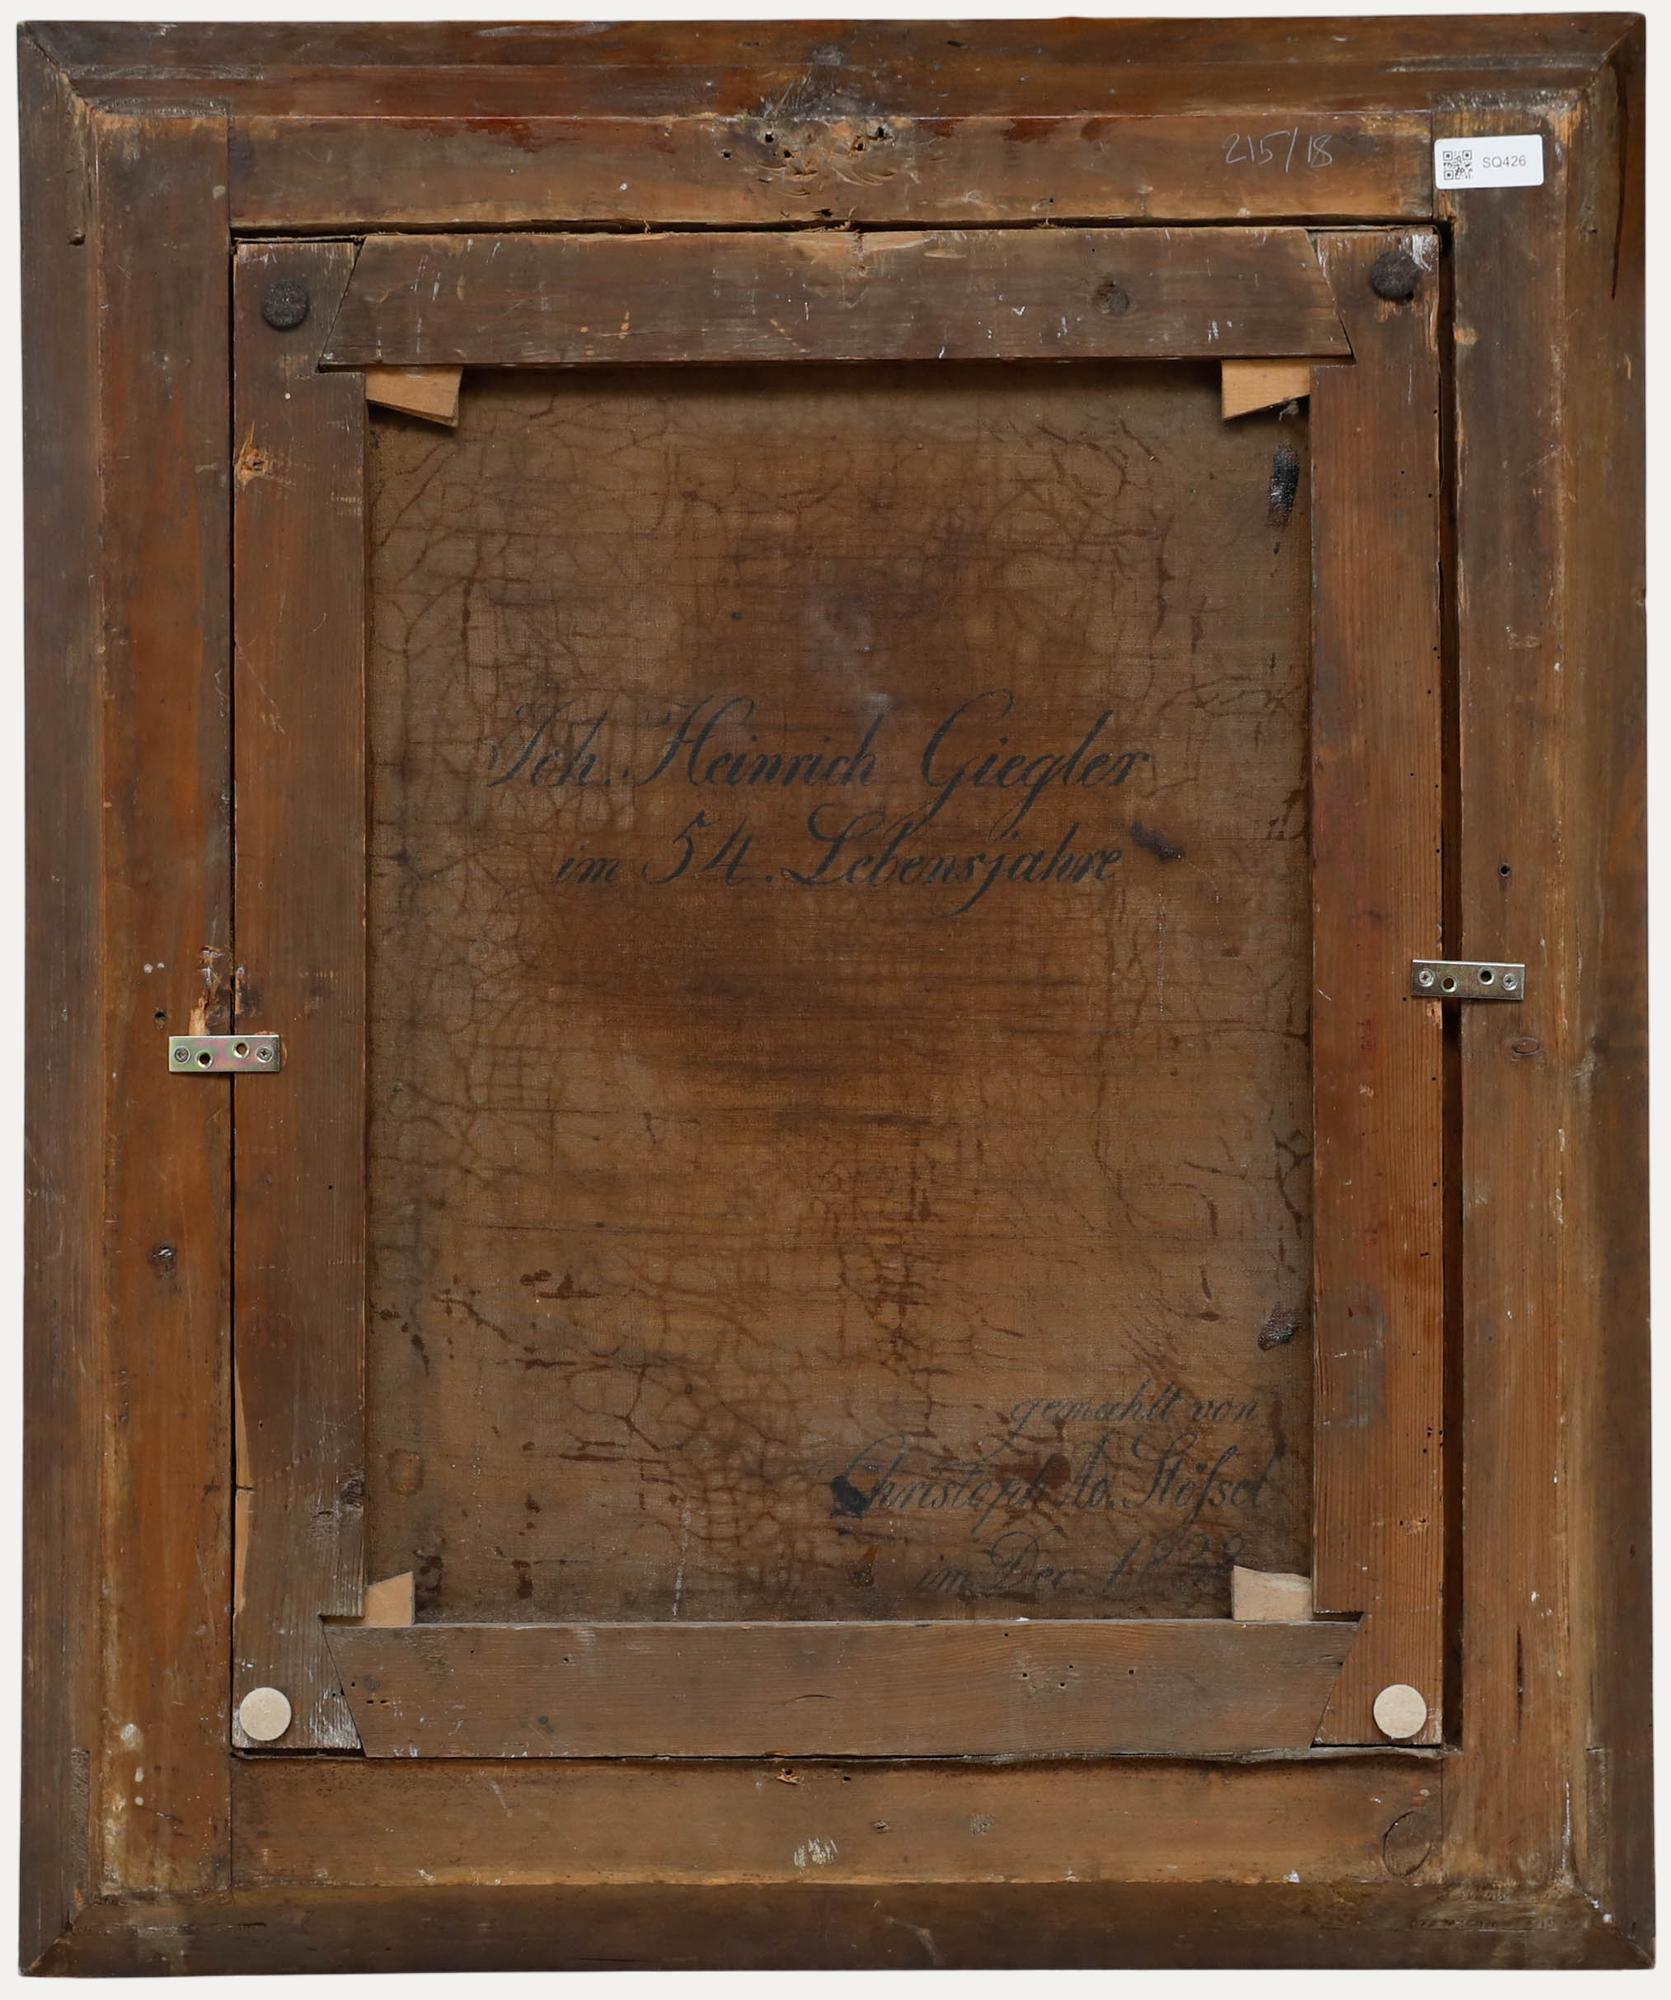 215/18
SQ426
Joh. Heinrich Giegler
im 54. Lebensjahre
gemahlt von
Christoph Ao. Stößel
im Dec. 1822